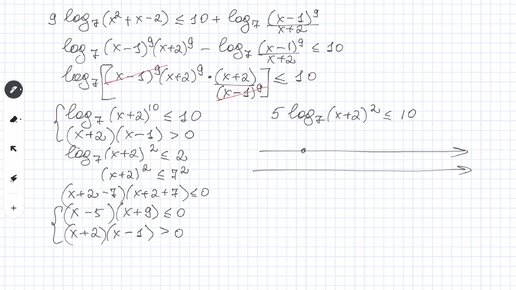 9 log₇(x²+x-2) ≤ 10 + log₇ (x-1)⁹/(x+2)
log₇(x-1)⁹(x+2)⁹ - log₇ (x-1)⁹/(x+2) ≤ 10
log₇[(x-1)⁹(x+2)⁹ · (x+2)/(x-1)⁹] ≤ 10
{ log₇(x+2)¹⁰ ≤ 10
(x+2)(x-1) > 0
5 log₇(x+2)² ≤ 10
log₇(x+2)² ≤ 2
(x+2)² ≤ 7²
(x+2-7)(x+2+7) ≤ 0
{ (x-5)(x+9) ≤ 0
(x+2)(x-1) > 0